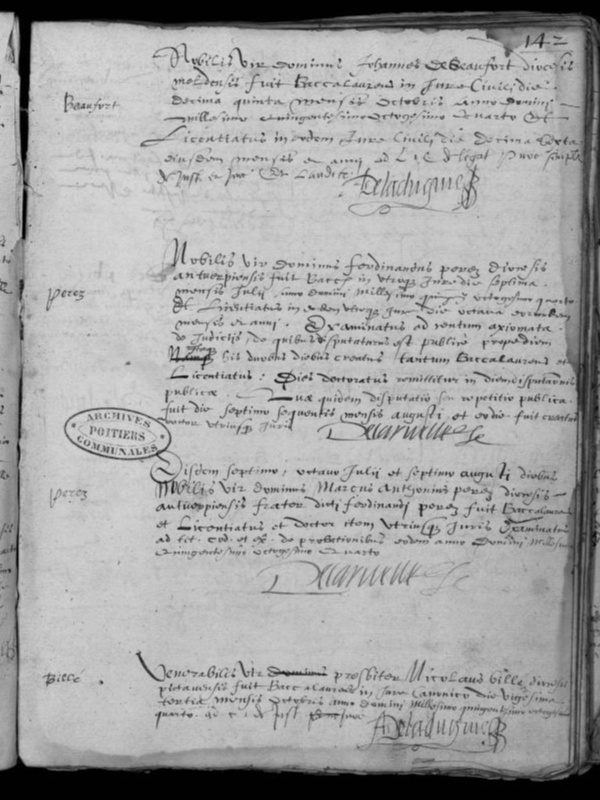 142
Beaufort
Nobilis vir dominus Johannes de Beaufort diocesis
meldensis fuit Baccalaureus in Jure Civili die
decima quinta mensis Octobris anno domini
millesimo quingentesimo octogesimo quarto Et
Licentiatus in eodem Jure Civili die decima sexta
eiusdem mensis et anni ad L
Just et
Perez
Nobilis vir dominus ferdinandus perez diocesis
antuerpiensis fuit Bacc in utroq Jure die septima
mensis Julii anno domini millesimo quing octogesimo quarto
Et Licentiatus in eodem utroq Jure die octava eorundem
mensis et anni. Examinatus ad centum axiomata
de Judiciis, de quibus disputaturus est publice propediem
his duobus diebus creatus tantum Baccalaureus et
Licentiatus: Dies doctoratus remittitur in diem disputationis
publicæ. Quæ quidem disputatio seu repetitio publica
fuit die septimo sequentis mensis augusti et eodie fuit creatus
doctor utriusq Juris
ARCHIVES
POITIERS
COMMUNALES
perez
Iisdem septimo, octavo Julii et septimo augusti diebus
Nobilis vir dominus Marcus Anthonius perez diocesis
antuerpiensis frater dicti ferdinandi perez fuit Baccalaureus
et Licentiatus et doctor item utriusq Juris Examinatus
ad tit. cod. et ex. de probationibus eodem anno Domini millesimo
quingentesimo octogesimo quarto
Bille
Venerabilis vir dominus presbiter Nicolaus bille diocesis
pictaviensis fuit Baccalaureus in Jure Canonico die vigesima
tertia mensis Octobris anno domini millesimo quingentesimo octogesimo
quarto